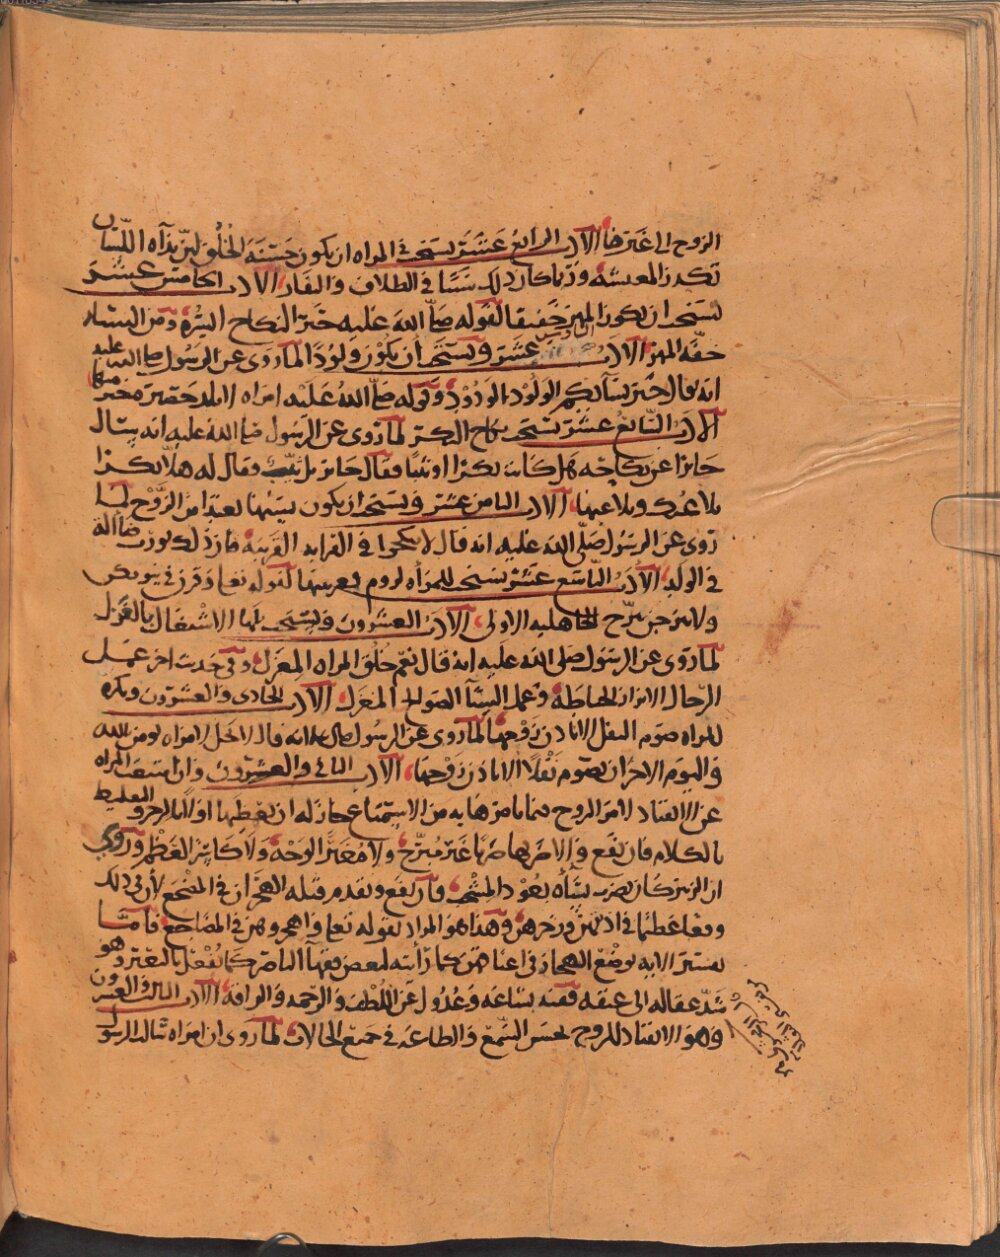 الزوج الى غيرها الادب الرابع عشر يستحب في المراه ان تكون حسنة الخلق لين بذآه اللسان
تكدر المعيشه وربما كان ذلك سببا في الطلاق والفار الادب الخامس عشر
يستحب ان يكون المهر خفيفا لقوله صلى الله عليه خير النكاح اليسره ومن البسار
خفه المهر الادب السادس عشر ويستحب ان يكون ولودا لما روى عن الرسول صلى الله عليه
انه قال خير نسائكم الولود الودود وقوله صلى الله عليه امراه لا تلد حصير خير منها
الادب السابع عشر يستحب نكاح البكر لما روى عن الرسول صلى الله عليه انه سال
جابرا عن نكاحه هل كانت بكرا او ثيبا فقال جابر بل ثيب فقال له هلا بكرا
تلاعبك وتلاعبها الادب الثامن عشر ويستحب ان يكون بيتها بعيدا من الزوج لما
روى عن الرسول صلى الله عليه انه قال لا تنكحوا في القرابه القريبه فان ذلك يورث ضآلة
في الولد الادب التاسع عشر يستحب للمرأه لزوم بيتها لقوله تعالى وقرن في بيوتكن
ولا تبرجن تبرج الجاهليه الاولى الادب العشرون ويستحب لها الاشتغال بالغزل
لما روى عن الرسول صلى الله عليه انه قال نعم خلق المراه المغزل وفي حديث اخر عمل
الرجال الابرار الخياطه وعمل النسآ الصوالح المغزل الادب الحادى والعشرون ويكره
للمراه صوم النفل الا باذن زوجها لما روى عن الرسول صلى الله انه قال لا تحل لامراه تومن بالله
واليوم الاخر ان تصوم نفلا الا باذن زوجها الادب الثانى والعشرون وان امتنعت المراه
عن الانقياد لامر الزوج فيما يامرها به من الاستمتاع جاز له ان يعظها اولا بالزجر والتغليظ
بالكلام فان نفع والا ضربها ضربا غير مبرح ولا مغير الوجه ولا كاسر العظم وروى
ان الزبير كان يضرب نسآه بعود المشجب فان نفع وتقدم قبله الهجران في المضجع لان في ذلك
وقعا عظيما في اذيتهن وزجرهن وهذا هو المراد بقوله تعالى واهجروهن في المضاجع فاما
تفسير الايه بوضع الهجار في اعناقهن كما رأيته لبعض فقهآ الناصر كما يفعل بالبعير وهو
شد عقاله الى عنقه ففيه بشاعه وعدول عن اللطف والرحمه والرافه الادب الثالث والعشرون
وهو الانقياد للزوج بحسن السمع والطاعه في جميع الحالات لما روى ان امراه سالت الرسول